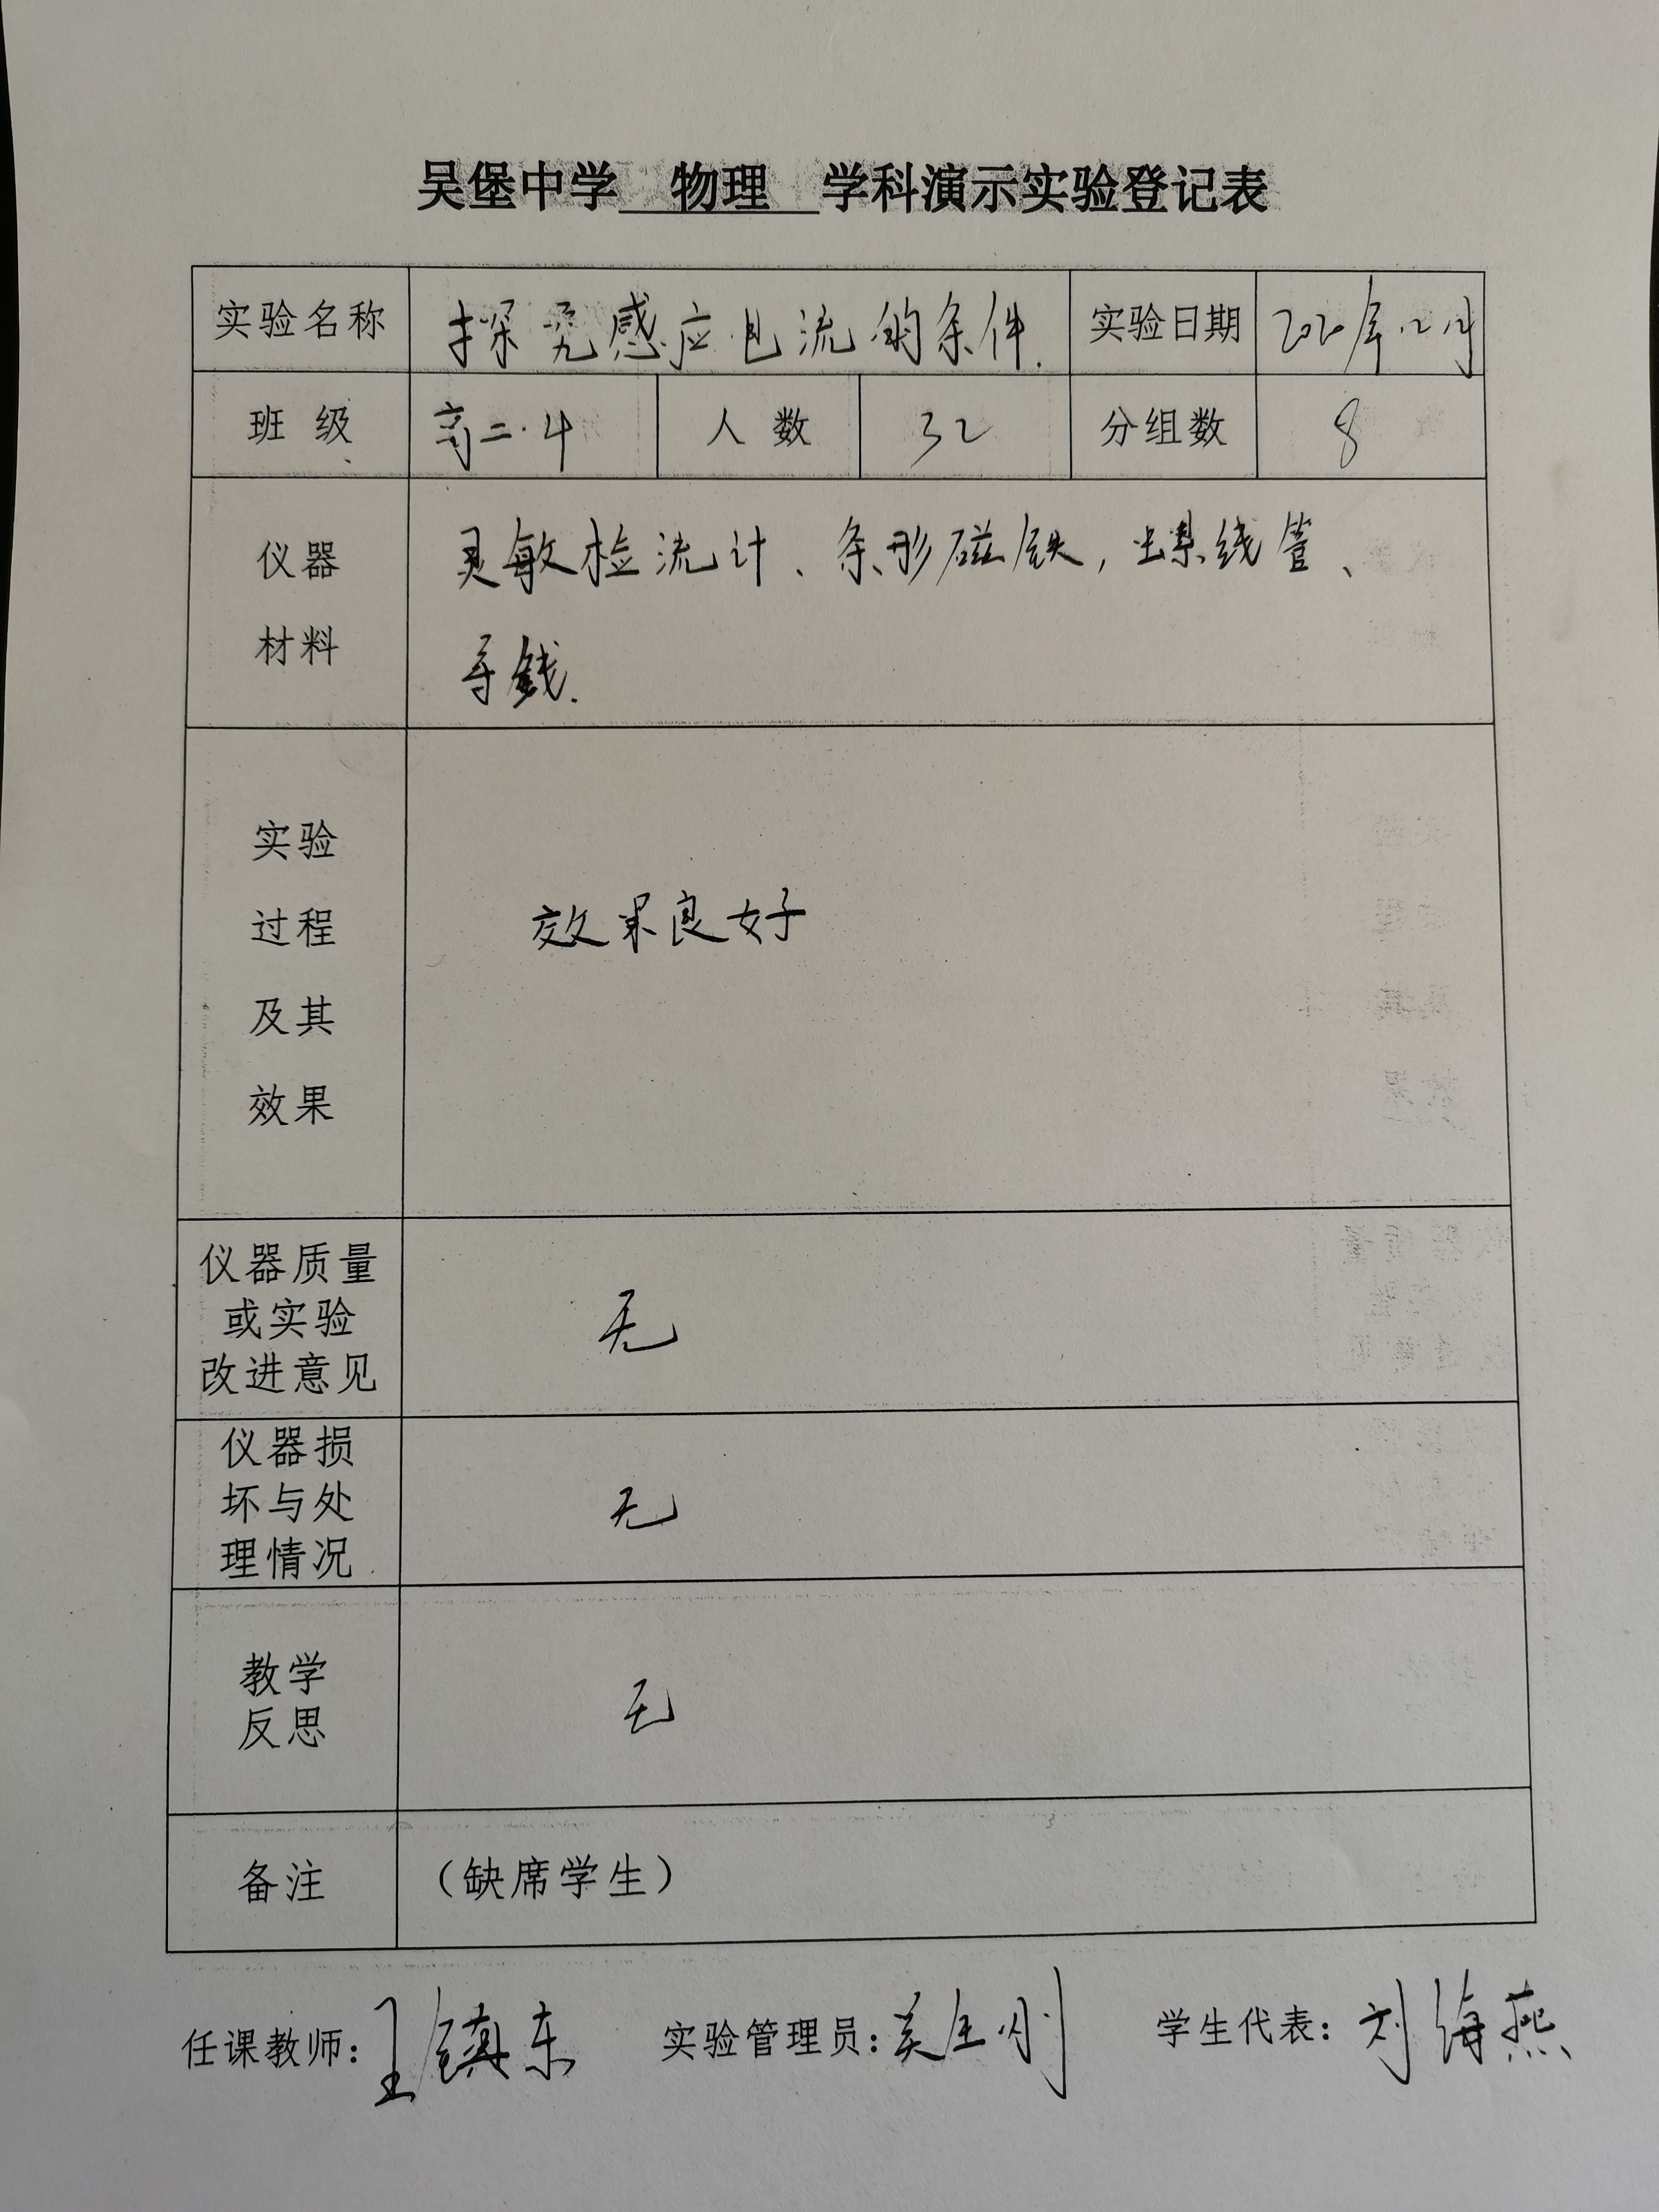 吴堡中学 物理 学科演示实验登记表
实验名称 探究感应电流的条件. 实验日期 2020年12月
班 级 高二·4 人 数 32 分组数 8
仪器
材料
灵敏检流计、条形磁铁,螺线管、
导线.
实验
过程
及其
效果
效果良好
仪器质量
或实验
改进意见
无
仪器损
坏与处
理情况
无
教学
反思
无
备注 (缺席学生)
任课教师: 王镇东 实验管理员: 学生代表: 刘海燕